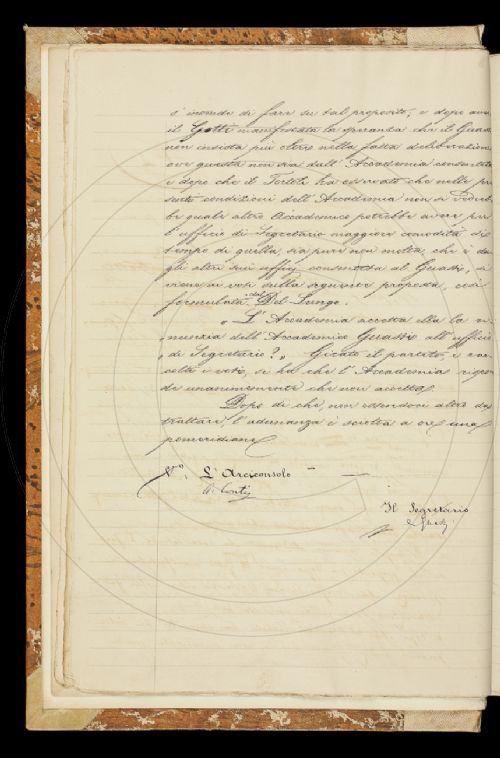 s'intende di fare su tal proposito, e dopo aver
il Gotti manifestata la speranza che il Guasti
non insista più oltre nella fatta deliberazione
ove questa non sia dall'Accademia consentita
e dopo che il Tortoli ha osservato che nelle pre
senti condizioni dell'Accademia non si vedreb
be quale altro Accademico potrebbe avere per
l'ufficio di Segretario maggiore comodità di
tempo di quella sia pure non molta, che è da
gli altri suoi uffici consentita al Guasti, si
viene ai voti sulla seguente proposta, così
formulata dal Del-Lungo.
„ L'Accademia accetta ella la ri
„ nunzia dell'Accademico Guasti all'ufficio
„ di Segretario? „ Girato il partito, e rac
colti i voti, si ha che l'Accademia rispon
de unanimemente che non accetta.
Dopo di che, non essendoci altro da
trattare, l'adunanza è sciolta a ore una
pomeridiane
V.° L'Arciconsolo
A. Conti
Il Segretario
C. Guasti